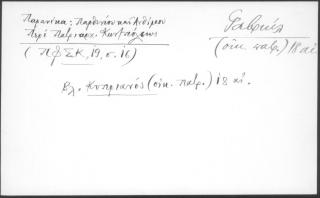 Παρανίκα: Παρθενίου και Ανθίμου
Περί Πατριαρχ. Κων/πόλεως
(ΠΦΣΚ, 19, σ. 16)
Γαβριήλ
(οικ. πατρ.) 18 αι
Βλ. Κυπριανός (οικ. πατρ.) 18 αι.